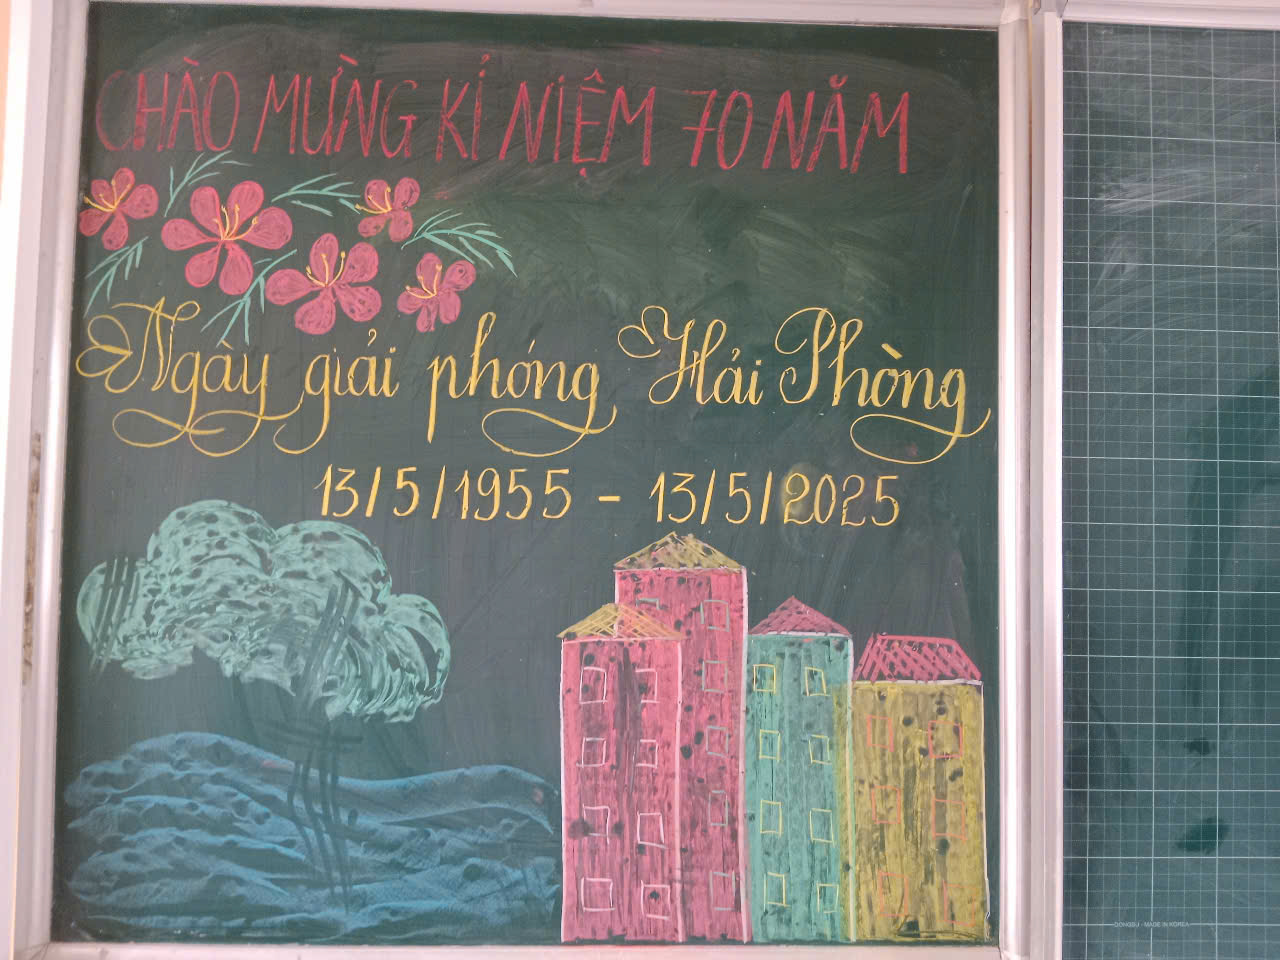 CHÀO MỪNG KỈ NIỆM 70 NĂM
Ngày giải phóng Hải Phòng
13/5/1955 - 13/5/2025
DONGBU - MADE IN KOREA